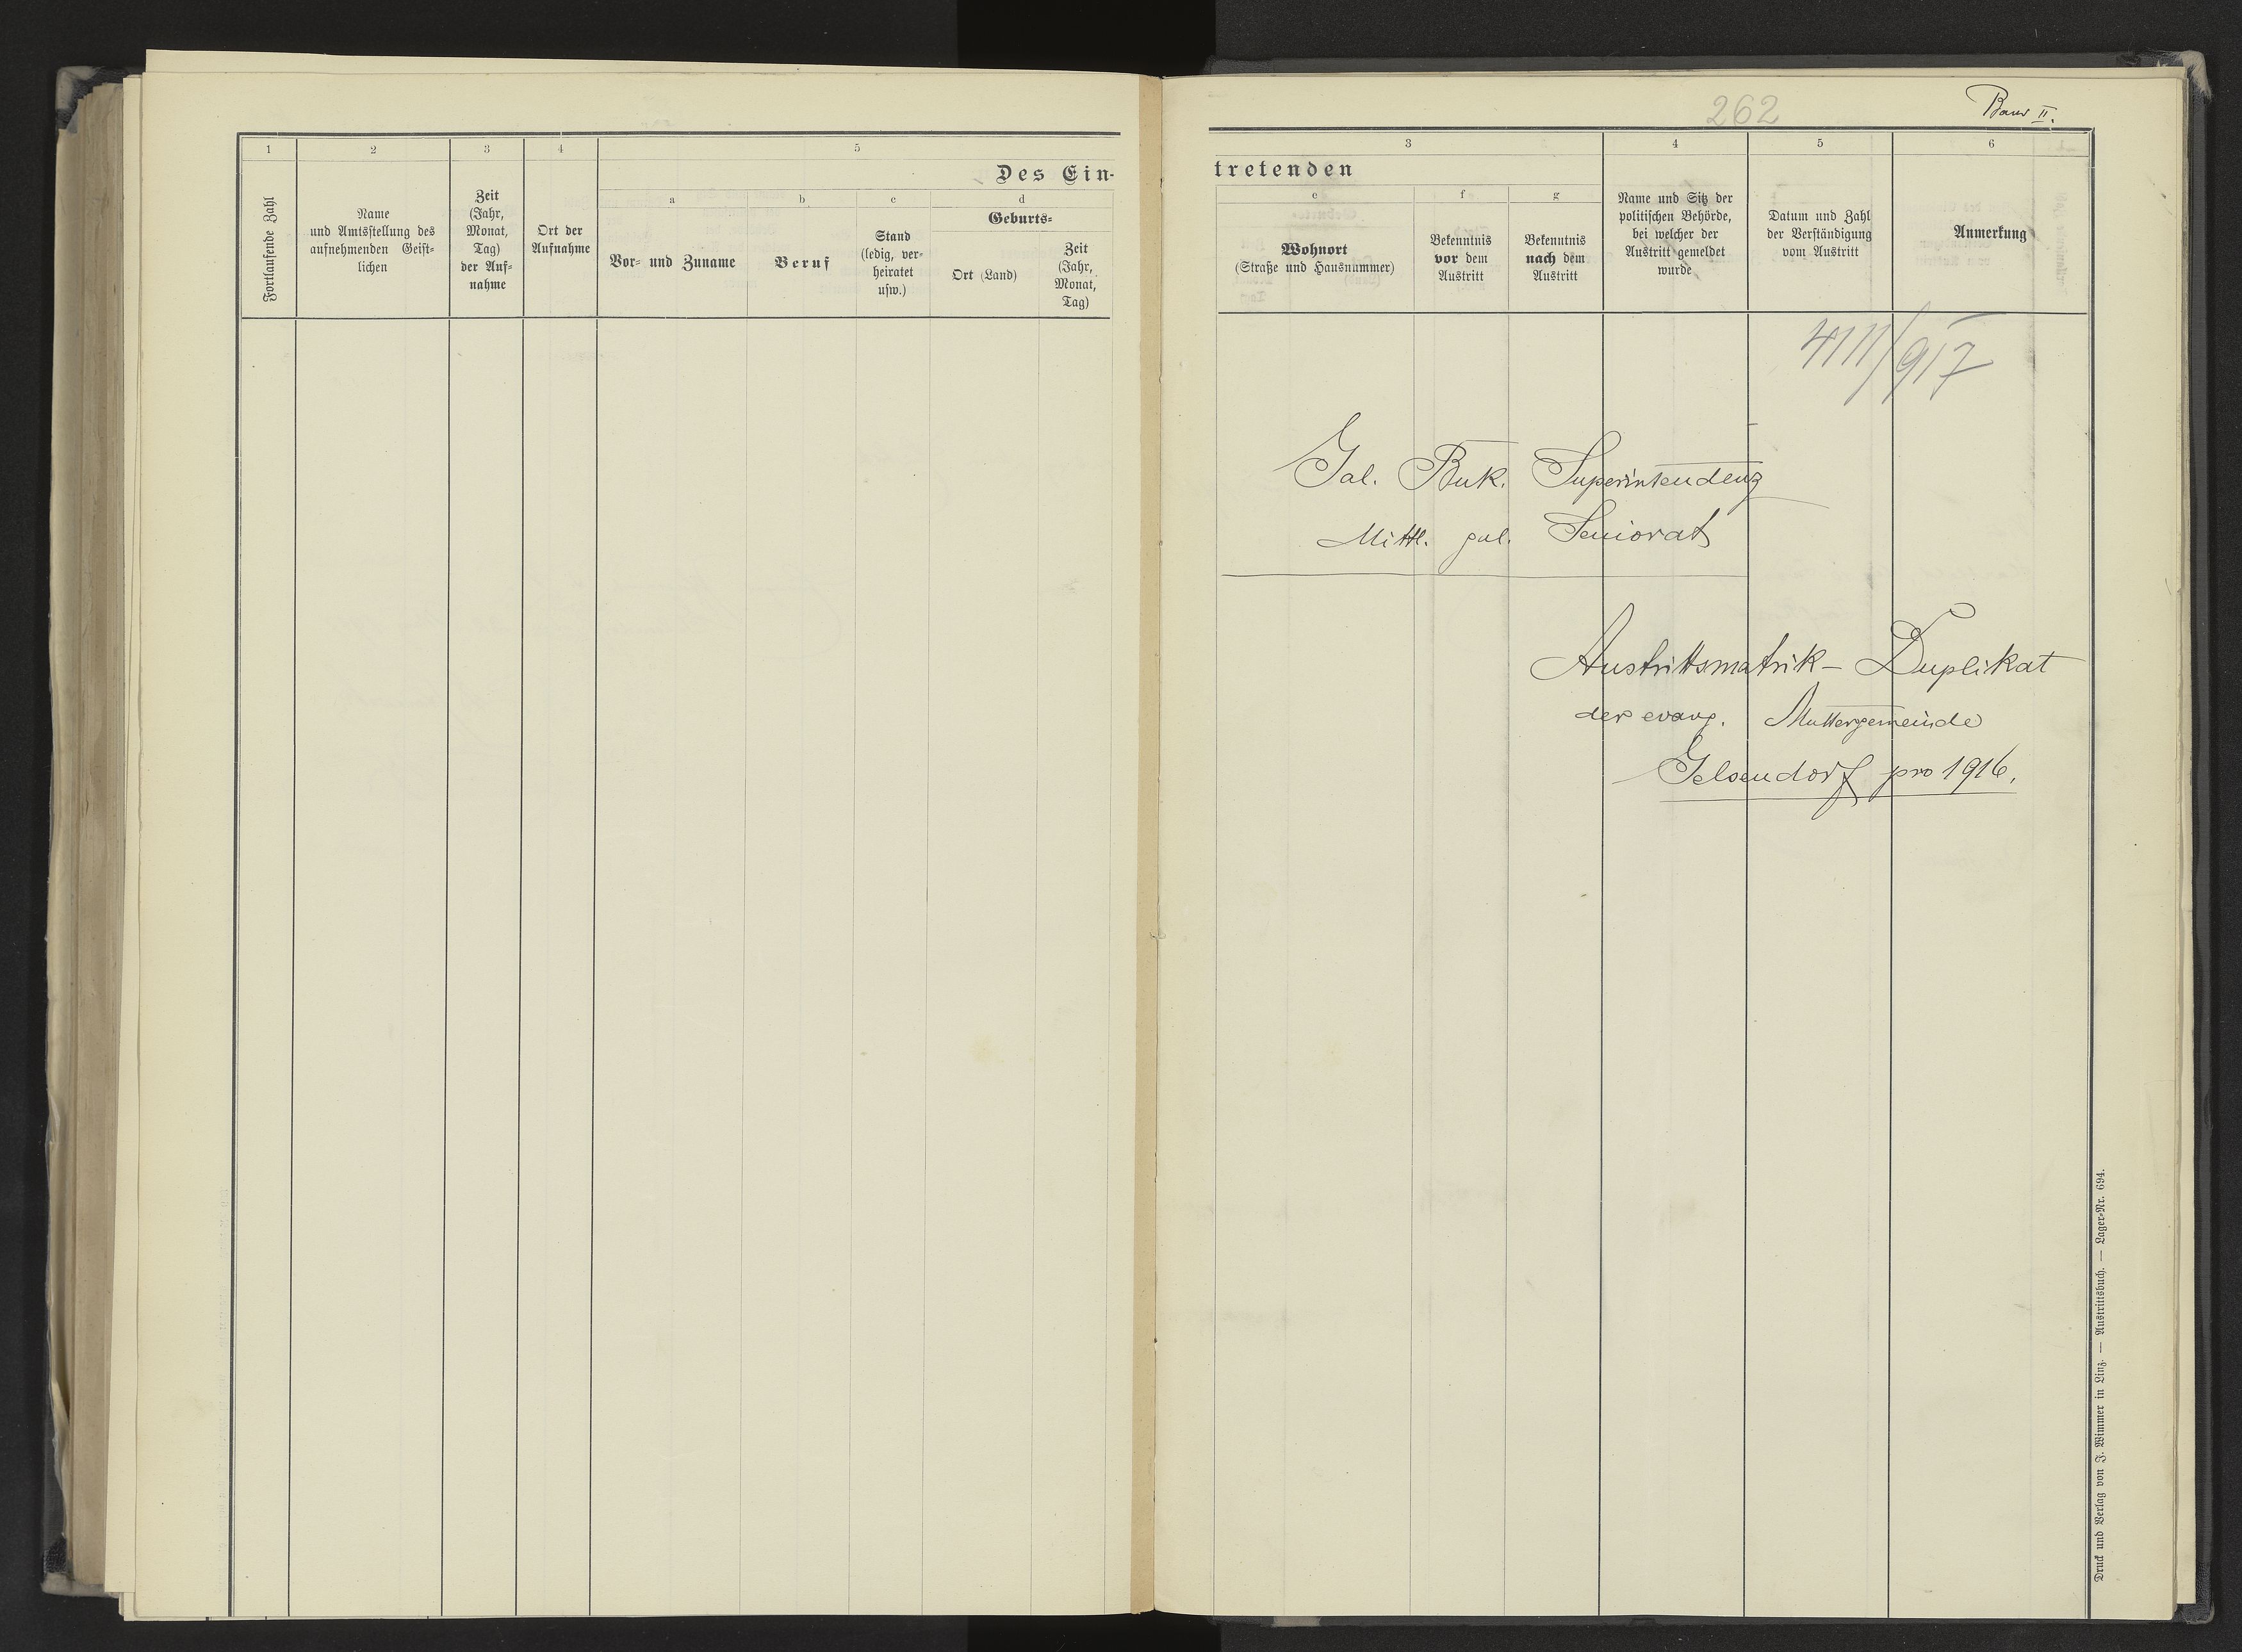 1 2 3 4 5
Des Ein-
a b c d
Fortlaufende Zahl
Name
und Amtsstellung des
aufnehmenden Geist-
lichen
Zeit
(Jahr,
Monat,
Tag)
der Auf-
nahme
Ort der
Aufnahme
Vor- und Zuname
Beruf
Stand
(ledig, ver-
heiratet
usw.)
Geburts-
Ort (Land)
Zeit
(Jahr,
Monat,
Tag)
262
II.
3 4 5 6
tretenden
e f g
Wohnort
(Straße und Hausnummer)
Bekenntnis
vor dem
Austritt
Bekenntnis
nach dem
Austritt
Name und Sitz der
politischen Behörde,
bei welcher der
Austritt gemeldet
wurde
Datum und Zahl
der Verständigung
vom Austritt
Anmerkung
4111/917
Gal. Buk. Superintendenz
Mittl. gal. Seniorat
Austrittsmatrik- Duplikat
der evang. Muttergemeinde
Gelsendorf pro 1916.
Druck und Verlag von J. Wimmer in Linz. — Austrittsbuch. — Lager-Nr. 694.